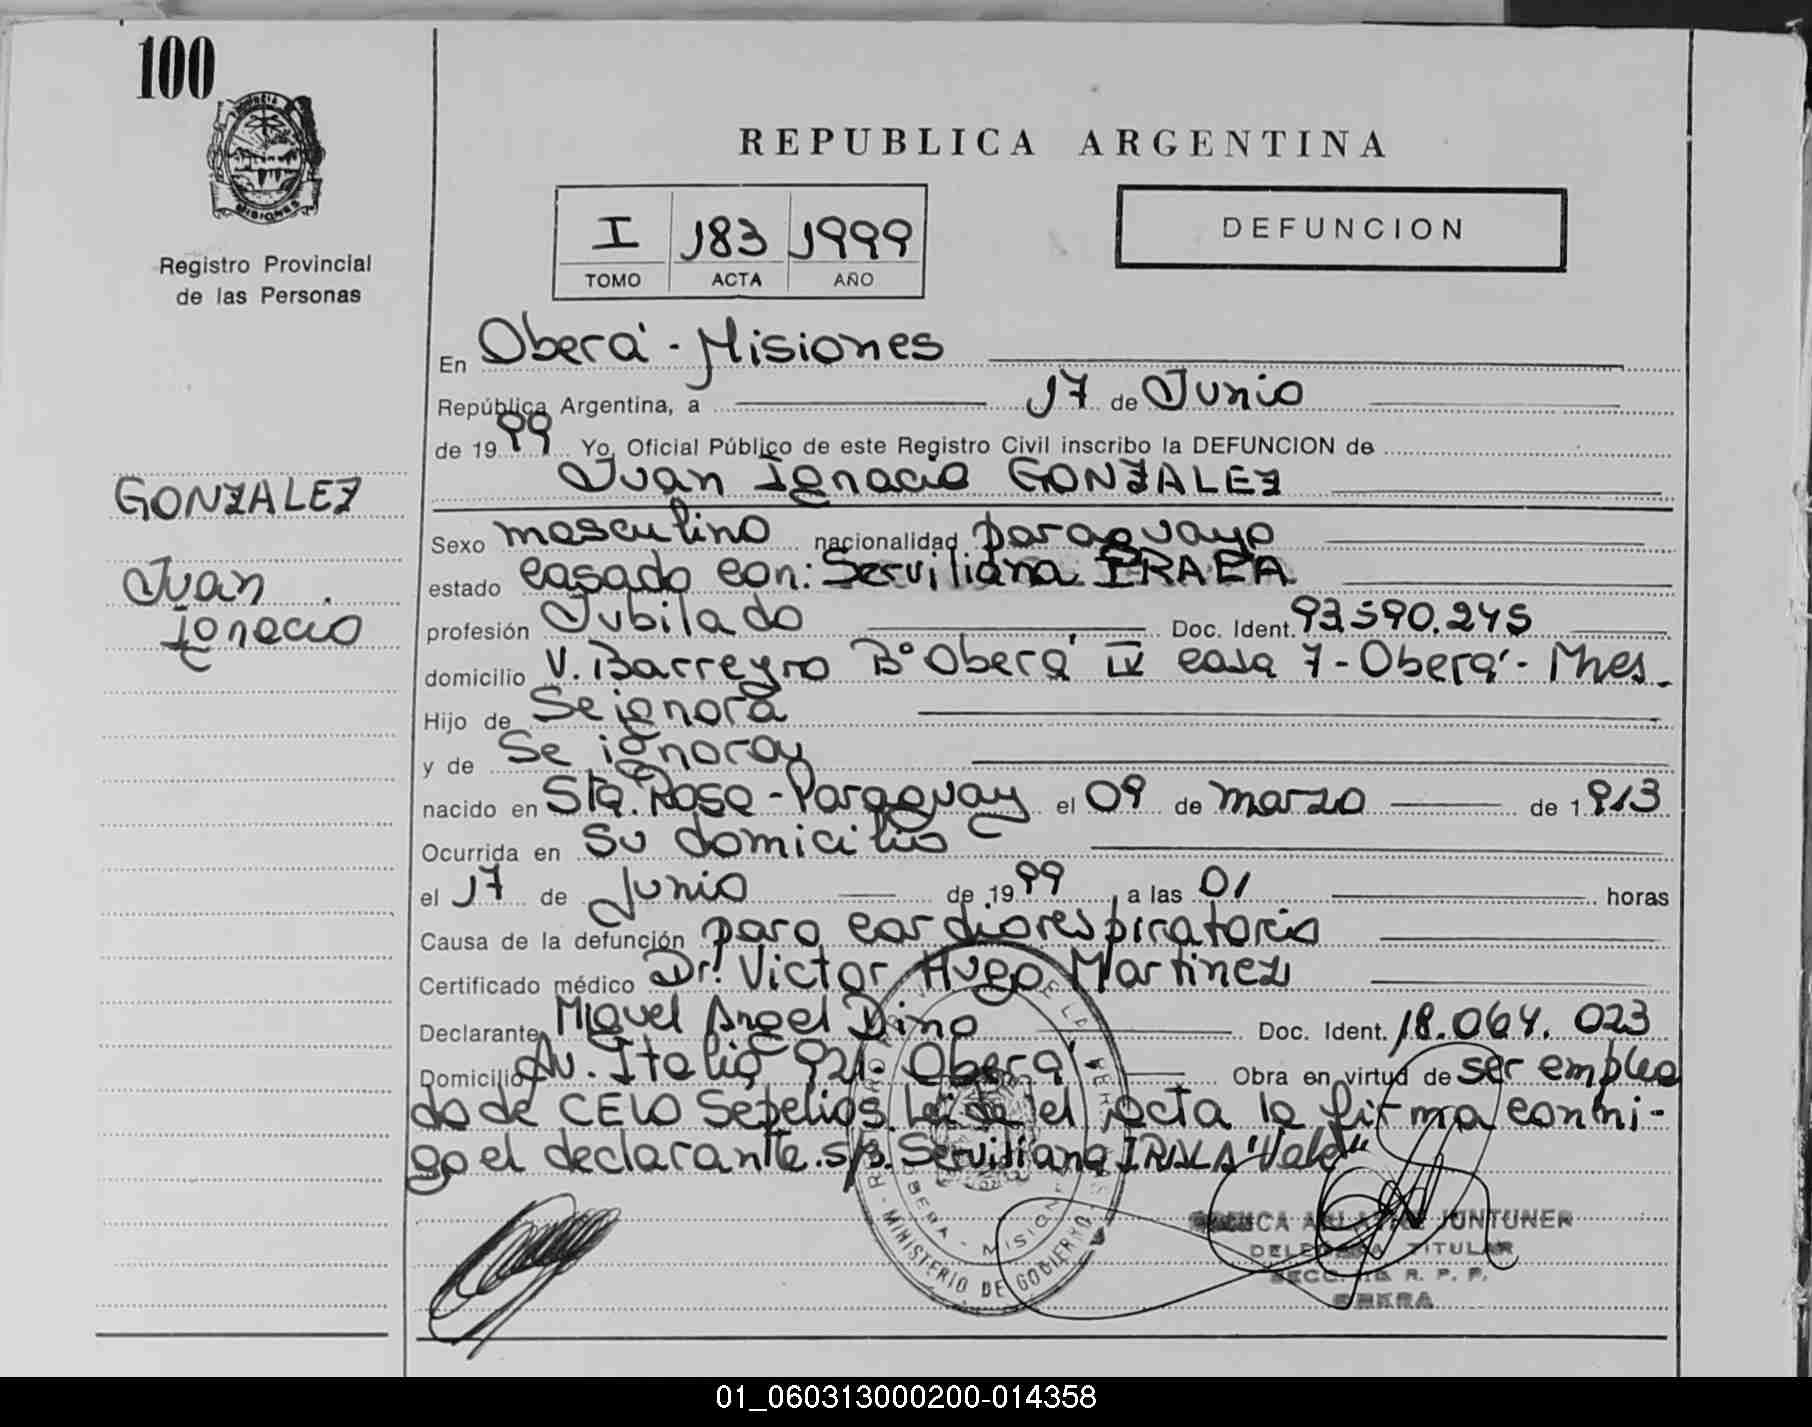 100
PROVINCIA DE
MISIONES
Registro Provincial
de las Personas
REPUBLICA ARGENTINA
I 183 1999
TOMO ACTA AÑO
DEFUNCION
En Oberá - Misiones
República Argentina, a 17 de Junio
de 1999 Yo, Oficial Público de este Registro Civil inscribo la DEFUNCION de
Juan Ignacio GONZALEZ
GONZALEZ
Juan
Ignacio
Sexo masculino nacionalidad paraguayo
estado casado con: Serviliana IRALA
profesión Jubilado Doc. Ident. 93.590.245
domicilio V. Barreyro B° Oberá IV casa 7 - Oberá - Mnes.
Hijo de Se ignora
y de Se ignora
nacido en Sta. Rosa - Paraguay el 09 de marzo de 1913
Ocurrida en su domicilio
el 17 de Junio de 1999 a las 01 horas
Causa de la defunción paro cardiorespiratorio
Certificado médico Dr. Victor Hugo Martinez
Declarante Miguel Angel Dino Doc. Ident. 18.064.023
Domicilio Av. Italia 921 Oberá Obra en virtud de ser emplea
do de CELO Sepelios. Leida el acta la firma conmi-
go el declarante. s/b. Serviliana IRALA "Vale"
OBERA - MISIONES
MINISTERIO DE GOBIERNO
JUNTUNER
DELEGADA TITULAR
R. P. P.
OBERA
01_060313000200-014358